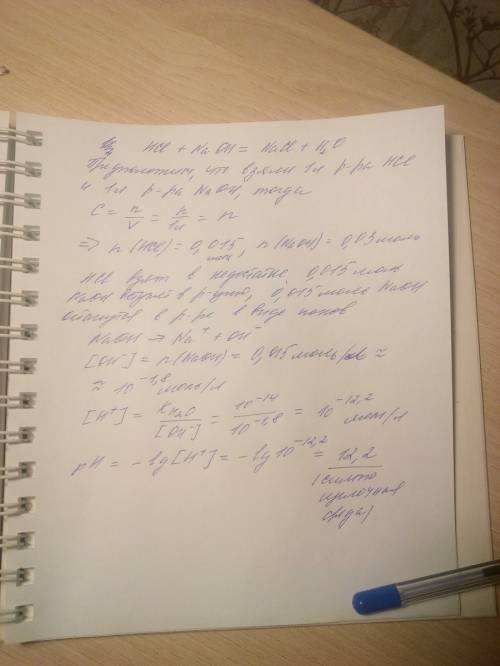 HCl + NaOH = NaCl + H₂O
Предположим, что взяли 1л р-ра HCl
и 1л р-ра NaOH, тогда
C = n/V = n/1л = n
⇒ n(HCl) = 0,015 моль, n(NaOH) = 0,03 моль
HCl взят в недостатке 0,015 моль
NaOH вступит в р-цию, 0,015 моль NaOH
останутся в р-ре в виде ионов
NaOH → Na⁺ + OH⁻
[OH⁻] = n(NaOH) = 0,015 моль/л ≈
≈ 10⁻¹,⁸ моль/л
[H⁺] = K H₂O/[OH⁻] = 10⁻¹⁴/10⁻¹,⁸ = 10⁻¹²,² моль/л
pH = -lg[H⁺] = -lg10⁻¹²,² = 12,2
(сильно
щелочная
среда)